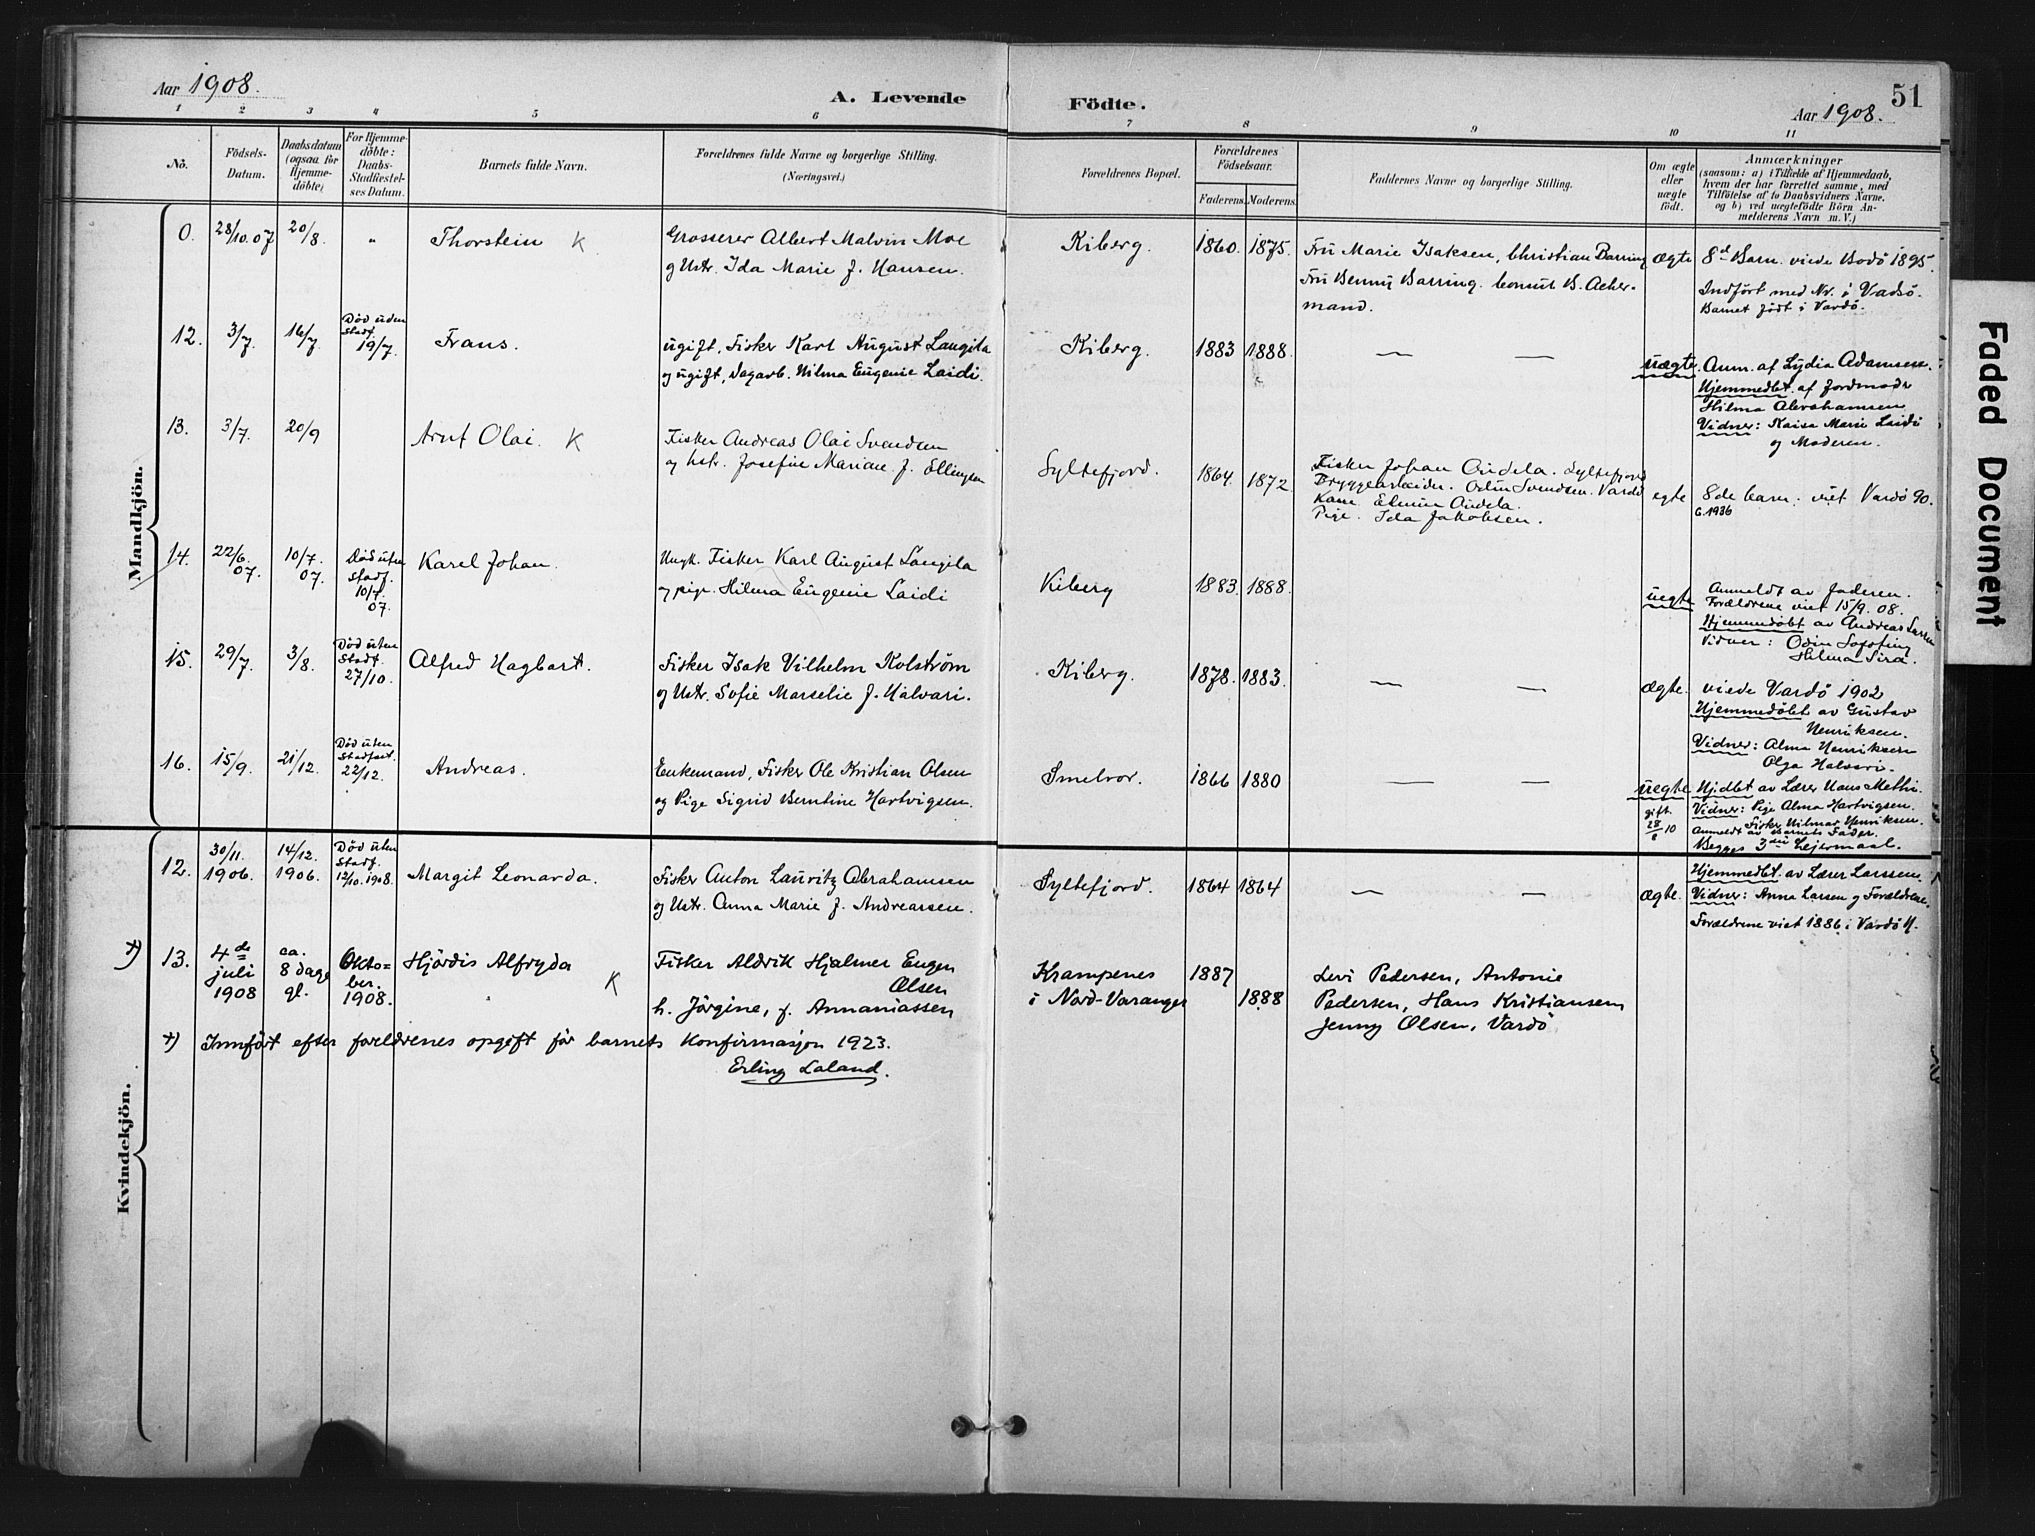 Aar 1908.
A. Levende Födte.
51
Aar 1908.
1 2 3 4 5 6 7 8 9 10 11
No.
Födsels-Datum.
Daabsdatum (ogsaa for Hjemme-döbte)
For Hjemme-döbte: Daabs-Stadfæstel-ses Datum.
Barnets fulde Navn.
Forældrenes fulde Navne og borgerlige Stilling.
(Næringsvei.)
Forældrenes Bopæl.
Forældrenes Födselsaar.
Faderens. Moderens.
Faddernes Navne og borgerlige Stilling.
Om ægte eller uægte födt.
Anmærkninger
(saasom: a) i Tilfælde af Hjemmedaab,
hvem der har forrettet samme, med
Tilföielse af to Daabsvidners Navne.
og b) ved uægtefödte Börn An-
melderens Navn m. V.)
Mandkjön.
0. 28/10.07 20/8. " Thorstein K
Grosserer Albert Malvin Moe
og Hstr. Ida Marie f. Hansen.
Kiberg. 1860. 1875.
Fru Marie Isaksen, Christian Barring
Fru Benny Barring. Consul B. Acker-
mand.
ægte
8d Barn. viede Bodö 1895.
Indfört med Nr. i Vadsö.
Barnet födt i Vardö.
12. 3/7. 16/7 Död uden Stadf. 19/7. Frans.
ugift, Fisker Karl August Langila
og ugift, Dagarb. Hilma Eugenie Laidi.
Kiberg. 1883 1888. — —
uægte.
Anm. af Lydia Adamsen.
Hjemmedbt. af Jordmodr
Hilma Abrahamsen
Vidner: Kaisa Marie Laidi
og Moderen.
13. 3/7. 20/9 Arnt Olai. K
Fisker Andreas Olai Svendsen
og hstr. Josefine Mariane f. Ellingsen
Syltefjord. 1864. 1872
Fisker Johan Oudela. Syltefjord
Bryggearbeider. Odin Svendsen. Vardö
Kone Elmine Oudela.
Pige. Ida Jakobsen.
egte
8de barn. viet Vardö 90.
G.1936
14. 22/6. 07. 10/7. 07. Död uten Stadf. 10/7. 07. Karel Johan.
Ungk. Fisker Karl August Langila
og pige. Hilma Eugenie Laidi
Kiberg 1883. 1888.
uegte
Anmeldt av Faderen.
Forældrene viet 15/9. 08.
Hjemmedöbt av Andreas Larsen
Vidner: Odin
Hilma Sira.
15. 29/7. 3/8. Död uten Stadf. 27/10. Alfred Hagbart.
Fisker Isak Vilhelm Kolström
og Hstr. Sofie Marselie f. Halvari.
Kiberg. 1878. 1883. — —
ægte.
viede Vardö 1902
Hjemmedöbt av Gustav
Henriksen.
Vidner: Alma Henriksen
Olga Halvari.
16. 15/9. 21/12. Död uten Stadfæst. 22/12. Andreas.
Enkemand, Fisker Ole Kristian Olsen
og Pige Sigrid Berntine Hartvigsen.
Smelror. 1866 1880 — —
uegte
gift. 28/8 10
Hjdbt av Lærer Hans Methi.
Vidner: Pige Alma Hartvigsen.
Fisker Hilmar Henriksen.
Anmeldt av Barnets Fader.
Begges 3die Leiermaal.
Kvindekjön.
12. 30/11. 1906. 14/12. 1906. Död uten Stadf. 12/10. 1908. Margit Leonarda.
Fisker Anton Lauritz Abrahamsen
og Hstr. Anna Marie f. Andreassen.
Syltefjord. 1864 1864 — —
ægte.
Hjemmedbt. av Lærer Larssen.
Vidner: Anna Larsen og Forældrene.
Forældrene viet 1886 i Vardö
+) 13. 4de juli 1908 ca. 8 dage gl. Okto=ber. 1908. Hjördis Alfryda K
Fisker Aldrik Hjalmer Eugen
Olsen
h. Jörgine, f. Annaniassen
Krampenes
i Nord-Varanger
1887 1888
Levi Pedersen, Antonie
Pedersen, Hans Kristiansen
Jenny Olsen, Vardö
+) Innfört efter foreldrenes opgift för barnets konfirmasjon 1923.
Erling Laland.
Faded Document